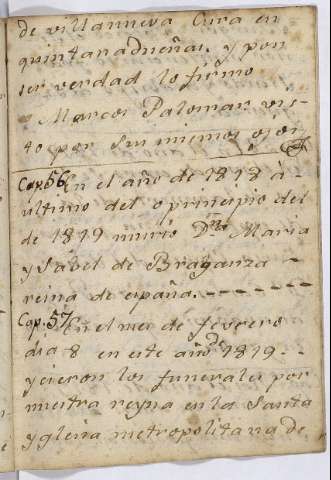 de villanueva Cura en
quintanadueñas. y por
ser verdad lo firmo
Marcos Palomar vis-
to por sus mismos ojos
Cap. 56 En el año de 1818 á
último del o principio del
de 1819 murio Dña Maria
y Ysabel de Braganza
reina de españa. - - - - - - -
Cap. 57 En el mes de febrero
dia 8 en este año de 1819 - -
ycieron los funerales por
nuestra reyna en la Santa
yglesia metropolitana de